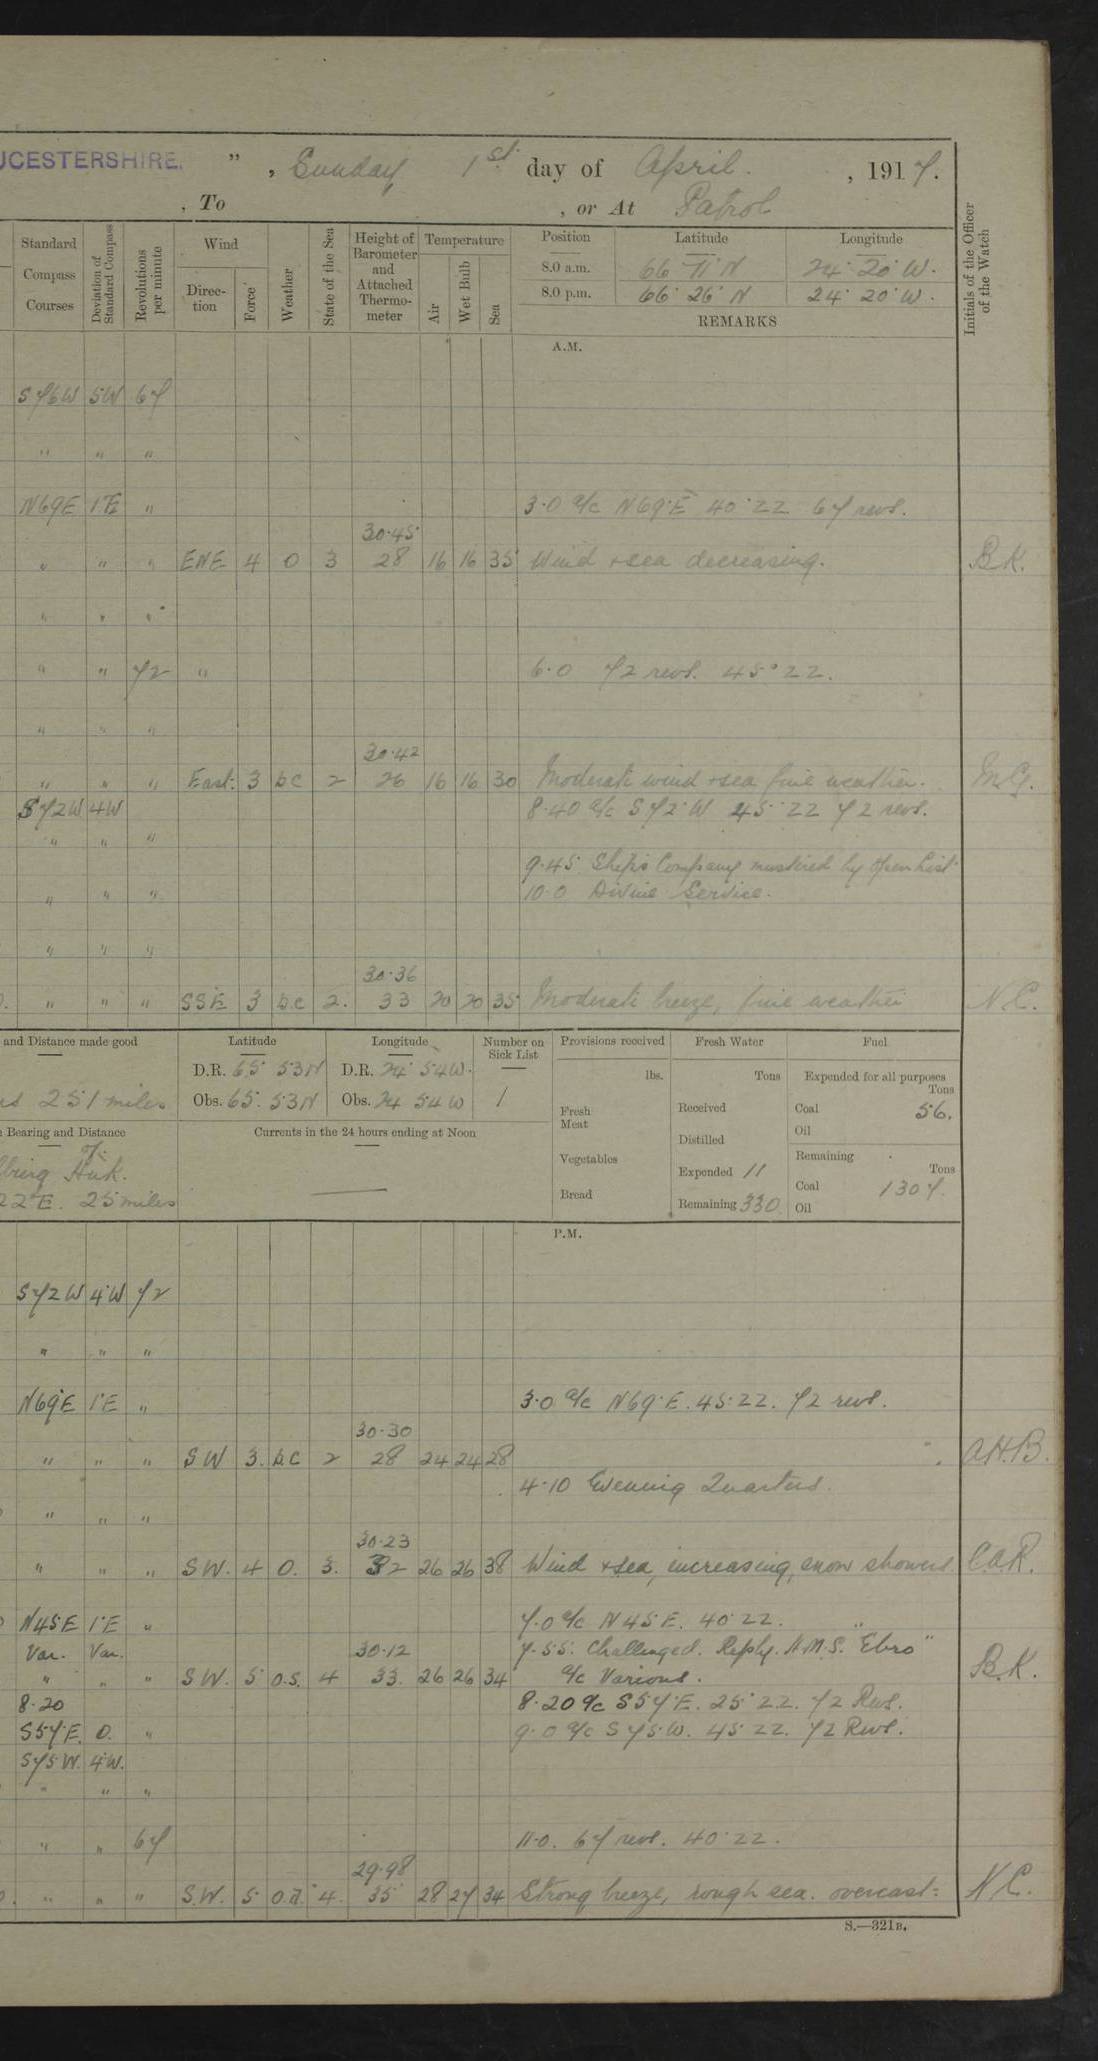 UCESTERSHIRE. ", Sunday, 1st day of April. , 1917.
, To , or At Patrol
Standard Compass Courses
Deviation of Standard Compass
Revolutions per minute
Wind
Direction
Force
Weather
State of the Sea
Height of Barometer and Attached Thermometer
Temperature
Air
Wet Bulb
Sea
Position Latitude Longitude
8.0 a.m. 66° 11' N 24° 20' W.
8.0 p.m. 66° 26' N 24° 20' W.
REMARKS
Initials of the Officer of the Watch
A.M.
S 76W 5W 67
" " "
N69E 1°E " 3.0 a/c N69°E 40°22 67 revs.
30.45
" " " ENE 4 O 3 28 16 16 35 Wind & sea decreasing. B.K.
" " "
" " 72 " 6.0 72 revs. 45°22.
" " "
30.42
" " " East. 3 bc 2 26 16 16 30 Moderate wind & sea fine weather.
S 72W 4W 8.40 a/c S 72°W 45°22 72 revs.
" " "
9.45 Ship's Company mustered by Open List
" " " 10.0 Divine Service.
" " "
30.36
" " " SSE 3 b.c 2. 33 20 20 35 Moderate breeze, fine weather N.C.
and Distance made good Latitude Longitude Number on Sick List Provisions received Fresh Water Fuel
D.R. 65° 53N D.R. 24° 54W.
251 miles Obs. 65. 53N Obs. 24 54W 1
lbs. Tons Expended for all purposes
Tons
Fresh Meat Received Coal 56.
Bearing and Distance Currents in the 24 hours ending at Noon
of
Distilled Oil
Huk. Vegetables Remaining
Expended 11 Tons
22°E. 25 miles Bread Coal 1307.
Remaining 330 Oil
P.M.
S72W 4°W 72
" " "
N69°E 1°E " 3.0 a/c N69°E. 45.22. 72 revs.
30.30
" " " SW 3. b.c 2 28 24 24 28 A.H.B.
4.10 Evening Quarters.
" " "
30.23
" " " SW. 4 O. 3. 32 26 26 38 Wind & sea, increasing, snow showers C.a.R.
N45E 1°E " 7.0 a/c N45E. 40°22.
Var. Var. 30.12 7.55. Challenged. Reply. H.M.S. "Ebro"
" " " S.W. 5 O.S. 4 33. 26 26 34 a/c Various. B.K.
8.20 8.20 a/c S57°E. 25°22. 72 Revs.
S57°E. 0. " 9.0 a/c S75W. 45°22. 72 Revs.
S75W. 4°W.
" " "
" " 67 11.0. 67 revs. 40°22.
29.98
" " " S.W. 5 4. 35 28 27 34 Strong breeze, rough sea. overcast: N.C.
S.—321B.